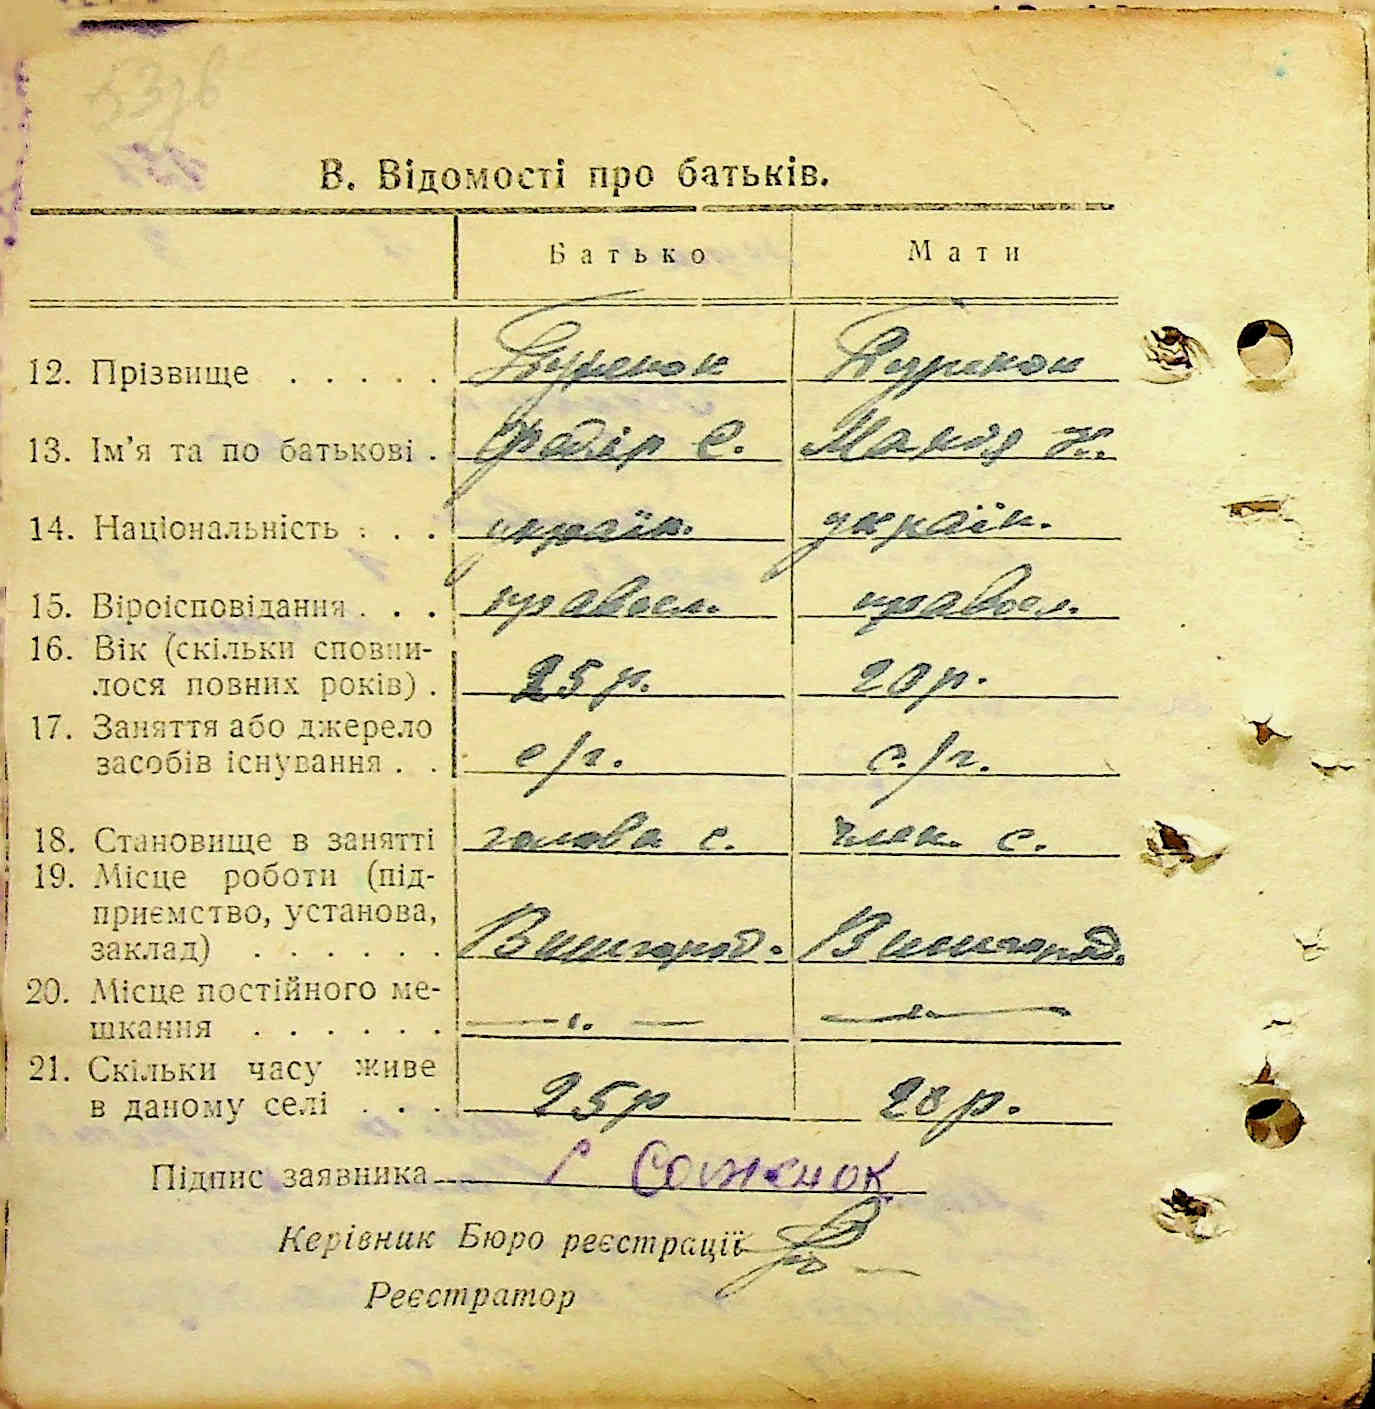 В. Відомості про батьків.
Батько Мати
12. Прізвище . . . . .
13. Ім'я та по батькові . Федір С. Марія К.
14. Національність . . . україн. україн.
15. Віроісповідання . . . правосл. правосл.
16. Вік (скільки сповни-
лося повних років) . 25 р. 20 р.
17. Заняття або джерело
засобів існування . . с/г. с./г.
18. Становище в занятті голова с. член. с.
19. Місце роботи (під-
приємство, установа,
заклад) . . . . . . Вишгород. Вишгород.
20. Місце постійного ме-
шкання . . . . . . — „ — — „ —
21. Скільки часу живе
в даному селі . . . 25 р 20 р.
Підпис заявника
Керівник Бюро реєстрації
Реєстратор